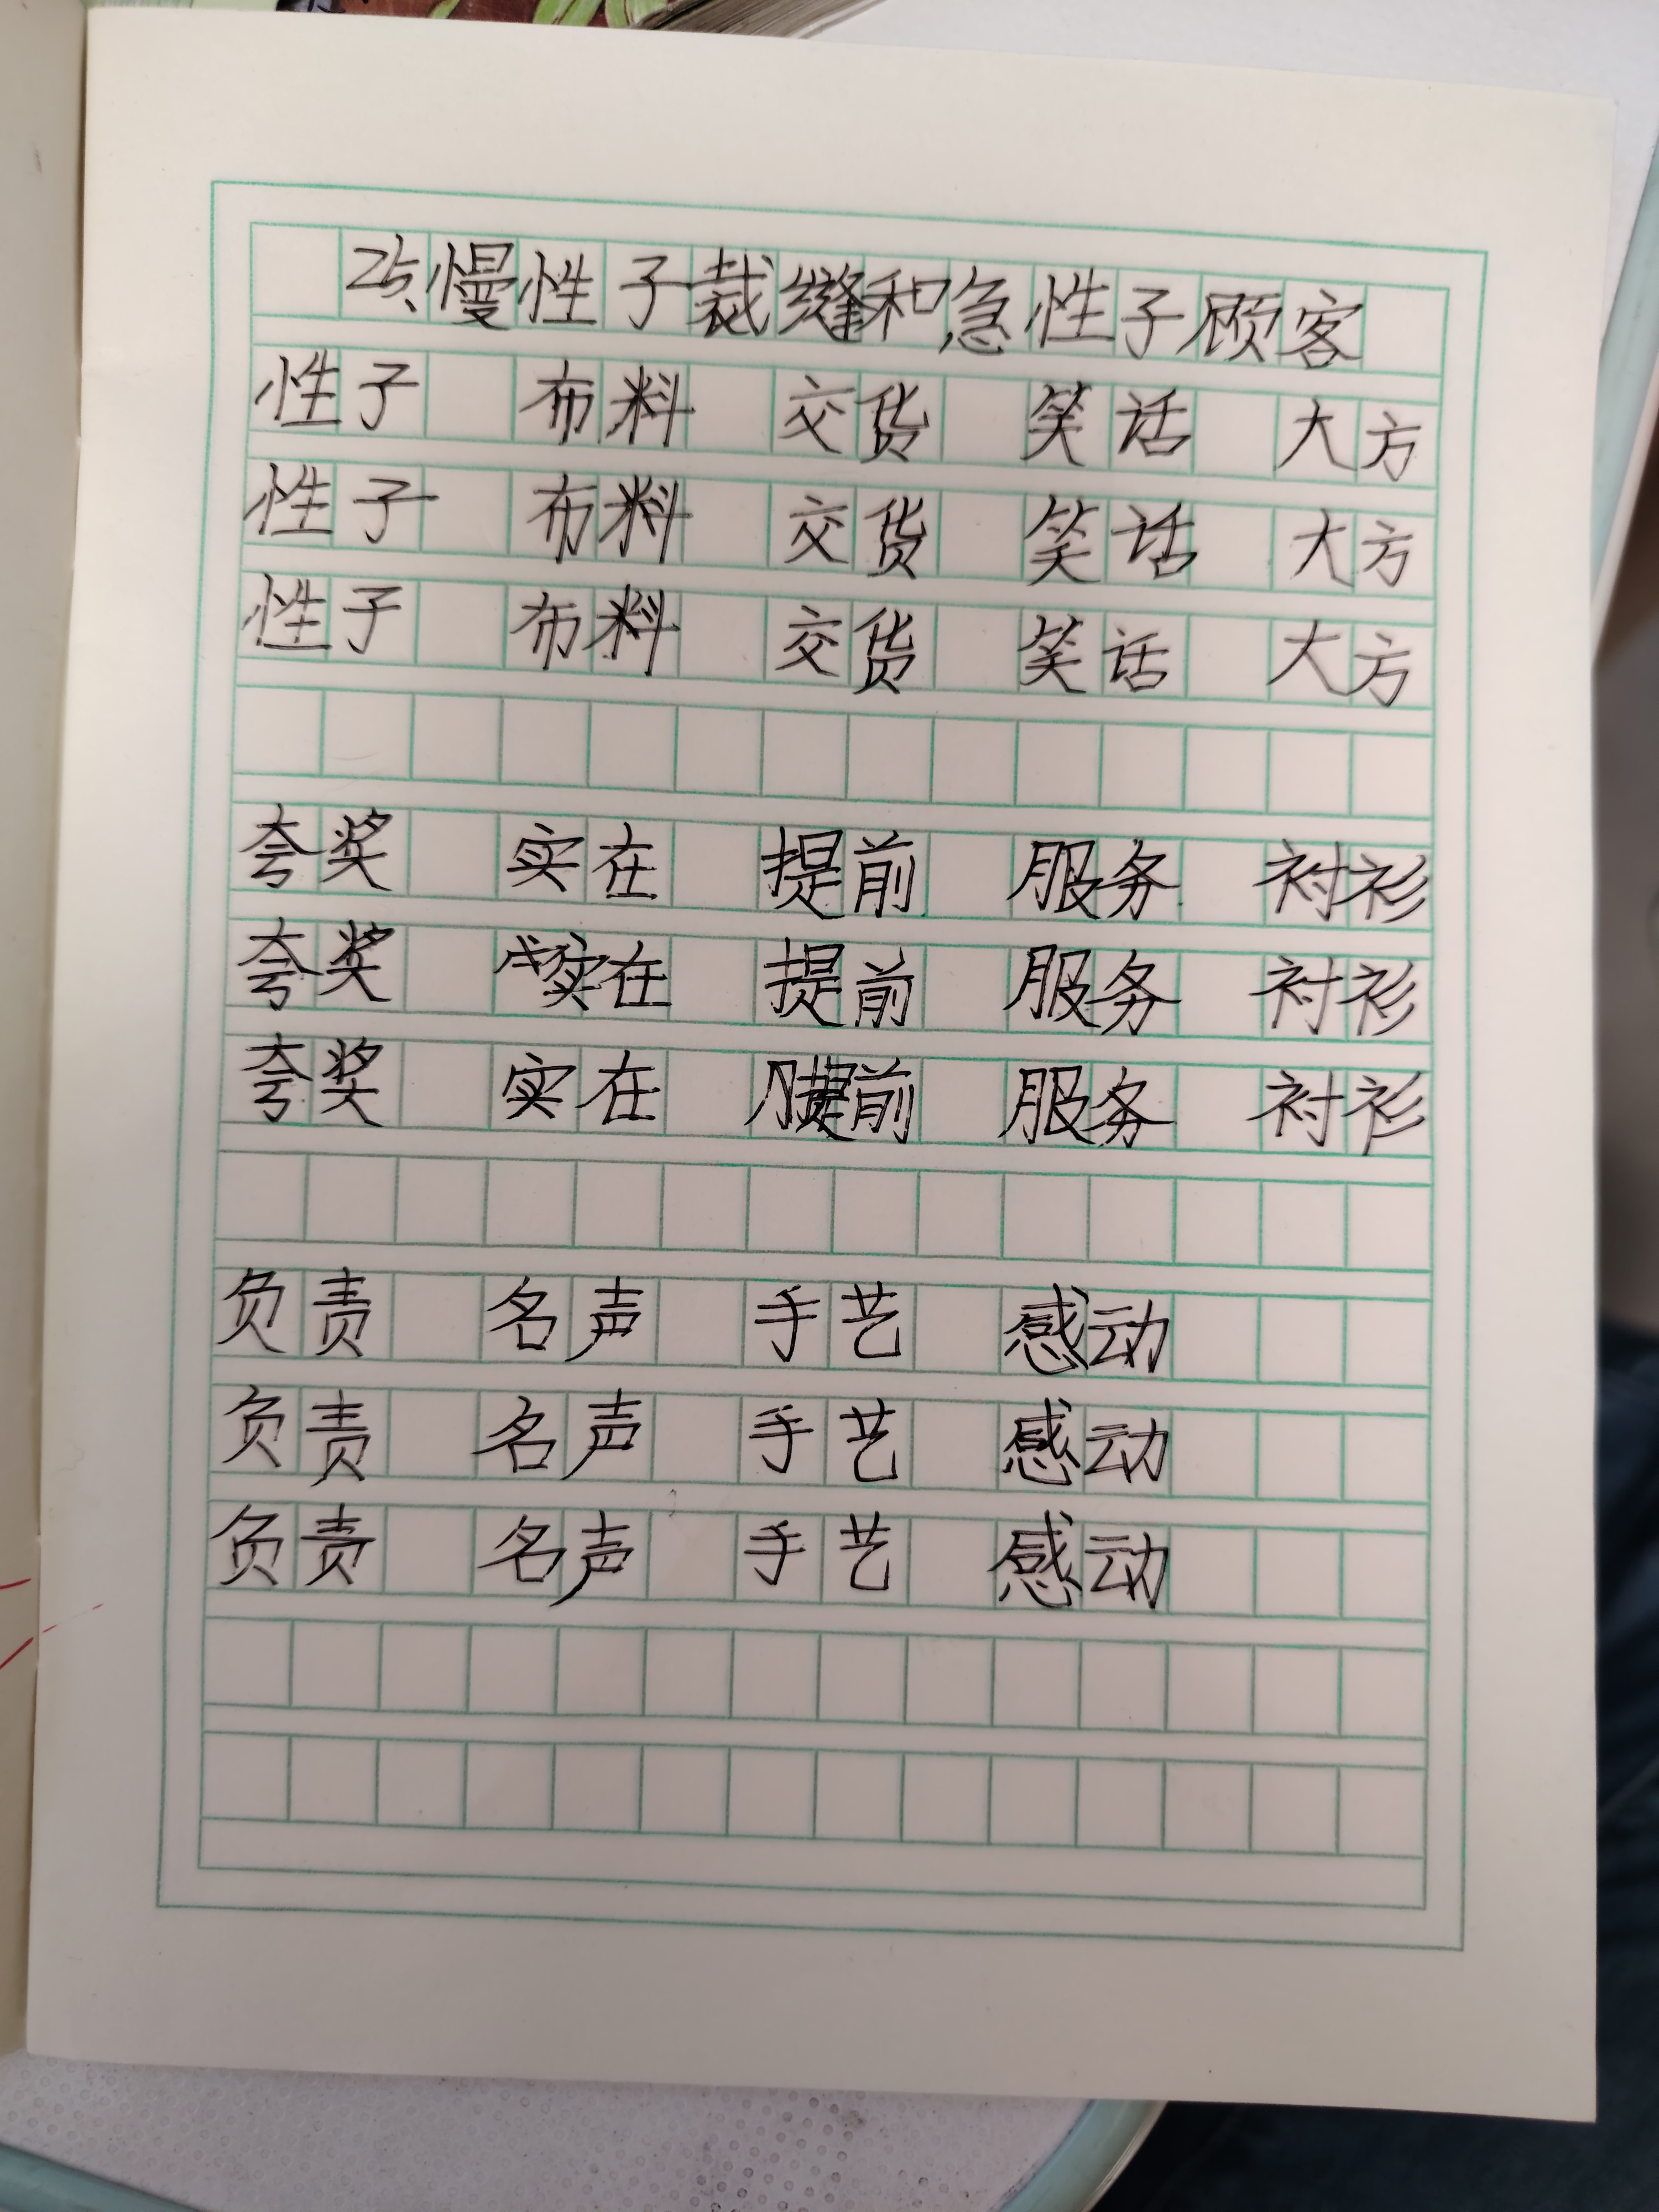 25、慢性子裁缝和急性子顾客
性子 布料 交货 笑话 大方
性子 布料 交货 笑话 大方
性子 布料 交货 笑话 大方
夸奖 实在 提前 服务 衬衫
夸奖 实在 提前 服务 衬衫
夸奖 实在 提前 服务 衬衫
负责 名声 手艺 感动
负责 名声 手艺 感动
负责 名声 手艺 感动